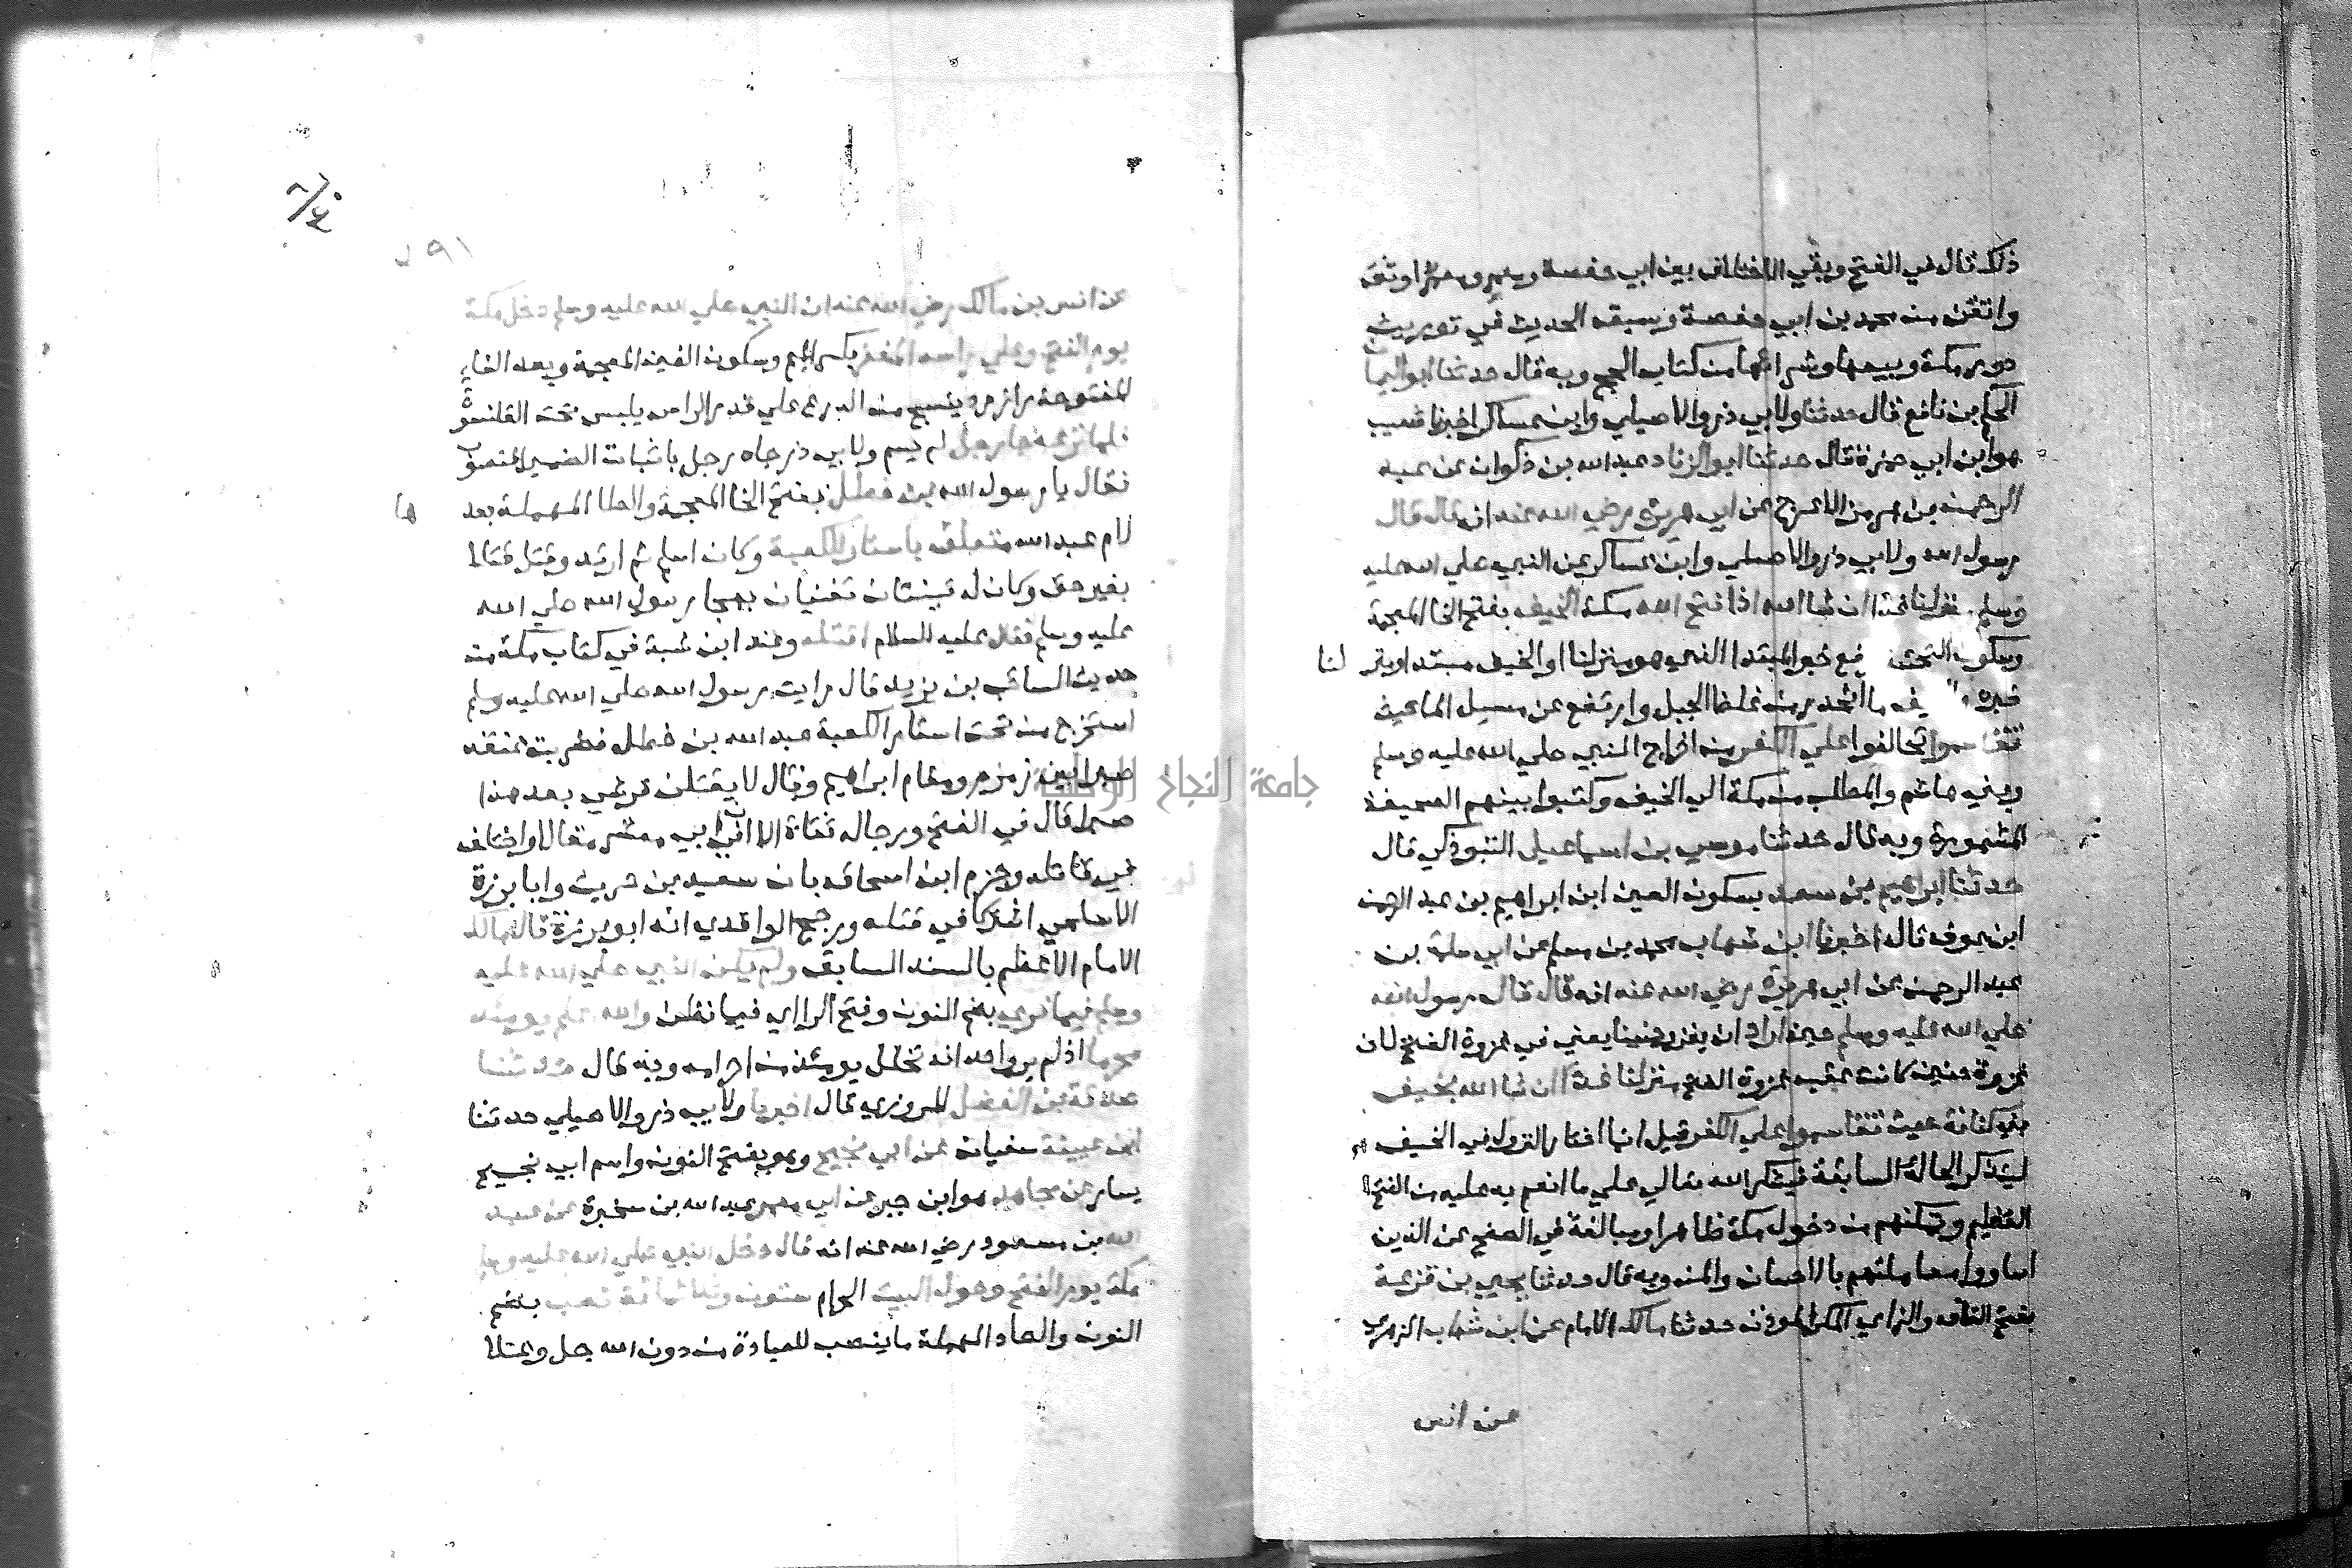 ذلك قال في الفتح وبقي الاختلاف بين ابي حفصة ومعمر ومعمر اوثق
واتقن من محمد بن ابي حفصة وسبقه الحديث في توريث
دور مكة وبيعها وشرائها من كتاب الحج وبه قال حدثنا ابو اليمان
الحكم بن نافع قال حدثنا ولابي ذر والاصيلي وابن عساكر اخبرنا شعيب
هو ابن ابي حمزة قال حدثنا ابو الزناد عبد الله بن ذكوان عن عبد
الرحمن بن هرمز الاعرج عن ابي هريرة رضي الله عنه انه قال قال
رسول الله ولابي ذر والاصيلي وابن عساكر عن النبي صلي الله عليه
وسلم منزلنا غدا ان شا الله اذا فتح الله مكة الخيف بفتح الخا المعجمة
وسكون التحتية رفع خبر المبتدا الذي هو منزلنا او الخيف مبتدا ومنزلنا
خبره والخيف ما انحدر من غلظ الجبل وارتفع عن مسيل الما حيث
تقاسموا تحالفوا علي الكفر من اخراج النبي صلي الله عليه وسلم
وبني هاشم والمطلب من مكة الي الخيف وكتبوا بينهم الصحيفة
المشهورة وبه قال حدثنا موسي بن اسماعيل التبوذكي قال
حدثنا ابراهيم بن سعد بسكون العين ابن ابراهيم بن عبد الرحمن
ابن عوف قال اخبرنا ابن شهاب محمد بن مسلم عن ابي سلمة بن
عبد الرحمن عن ابي هريرة رضي الله عنه انه قال قال رسول الله
صلي الله عليه وسلم حين اراد ان يغزو حنينا يعني في غزوة الفتح لان
غزوة حنين كانت عقب غزوة الفتح منزلنا غدا ان شا الله بخيف
بني كنانة حيث تقاسموا علي الكفر قيل انما اختار النزول في الخيف
ليتذكر الحالة السابقة فيشكر الله تعالي علي ما انعم به عليه من الفتح
العظيم وتمكنهم من دخول مكة ظاهرا ومبالغة في الصفح عن الذين
اساووا ومعاملتهم بالاحسان والمن وبه قال حدثنا يحيي بن قزعة
بفتح القاف والزاي المكي المؤذن حدثنا مالك الامام عن ابن شهاب الزهري
عن انس
٢٩١
عن انس بن مالك رضي الله عنه ان النبي صلي الله عليه وسلم دخل مكة
يوم الفتح وعلي راسه المغفر بكسر الميم وسكون الغين المعجمة وبعد الفاء
المفتوحة را زرد ينسج من الدرع علي قدر الراس يلبس تحت القلنسوة
فلما نزعه جا رجل لم يسم ولابي ذر جاه رجل باثبات الضمير المنصوب
فقال يا رسول الله ابن خطل بفتح الخا المعجمة والطا المهملة بعدها
لام عبد الله متعلق باستار الكعبة وكان اسلم ثم ارتد وقتل قتالا
بغير حق وكان له قينتان تغنيان بهجا رسول الله صلي الله
عليه وسلم فقال عليه السلام اقتله وعند ابن شبة في كتاب مكة من
حديث السائب بن يزيد قال رايت رسول الله صلي الله عليه وسلم
استخرج من تحت استار الكعبة عبد الله بن خطل فضربت عنقه
صبرا بين زمزم ومقام ابراهيم وقال لا يقتلن قرشي بعد هذا
صبرا قال في الفتح ورجاله ثقات الا ان في ابي معشر مقالا واختلف
في قاتله وجزم ابن اسحاق بان سعيد بن حريث وابا برزة
الاسلمي اشتركا في قتله ورجح الواقدي انه ابو برزة قال مالك
الامام الاعظم بالسند السابق ولم يكن النبي صلي الله عليه
وسلم فيما نري بضم النون وفتح الراي فيما نظن والله اعلم يومئذ
محرما اذ لم يرو احد انه تحلل يومئذ من احرامه وبه قال حدثنا
صدقة بن الفضل المروزي قال اخبرنا ولابي ذر والاصيلي حدثنا
ابن عيينة سفيان عن ابن ابي نجيح وهو بفتح النون واسم ابي نجيح
يسار عن مجاهد هو ابن جبر عن ابي معمر عبد الله بن سخبرة عن عبد
الله بن مسعود رضي الله عنه انه قال دخل النبي صلي الله عليه وسلم
مكة يوم الفتح وحول البيت الحرام ستون وثلاثمائة نصب بضم
النون والصاد المهملة ما ينصب للعبادة من دون الله جل وعلا
جامعة النجاح الوطنية